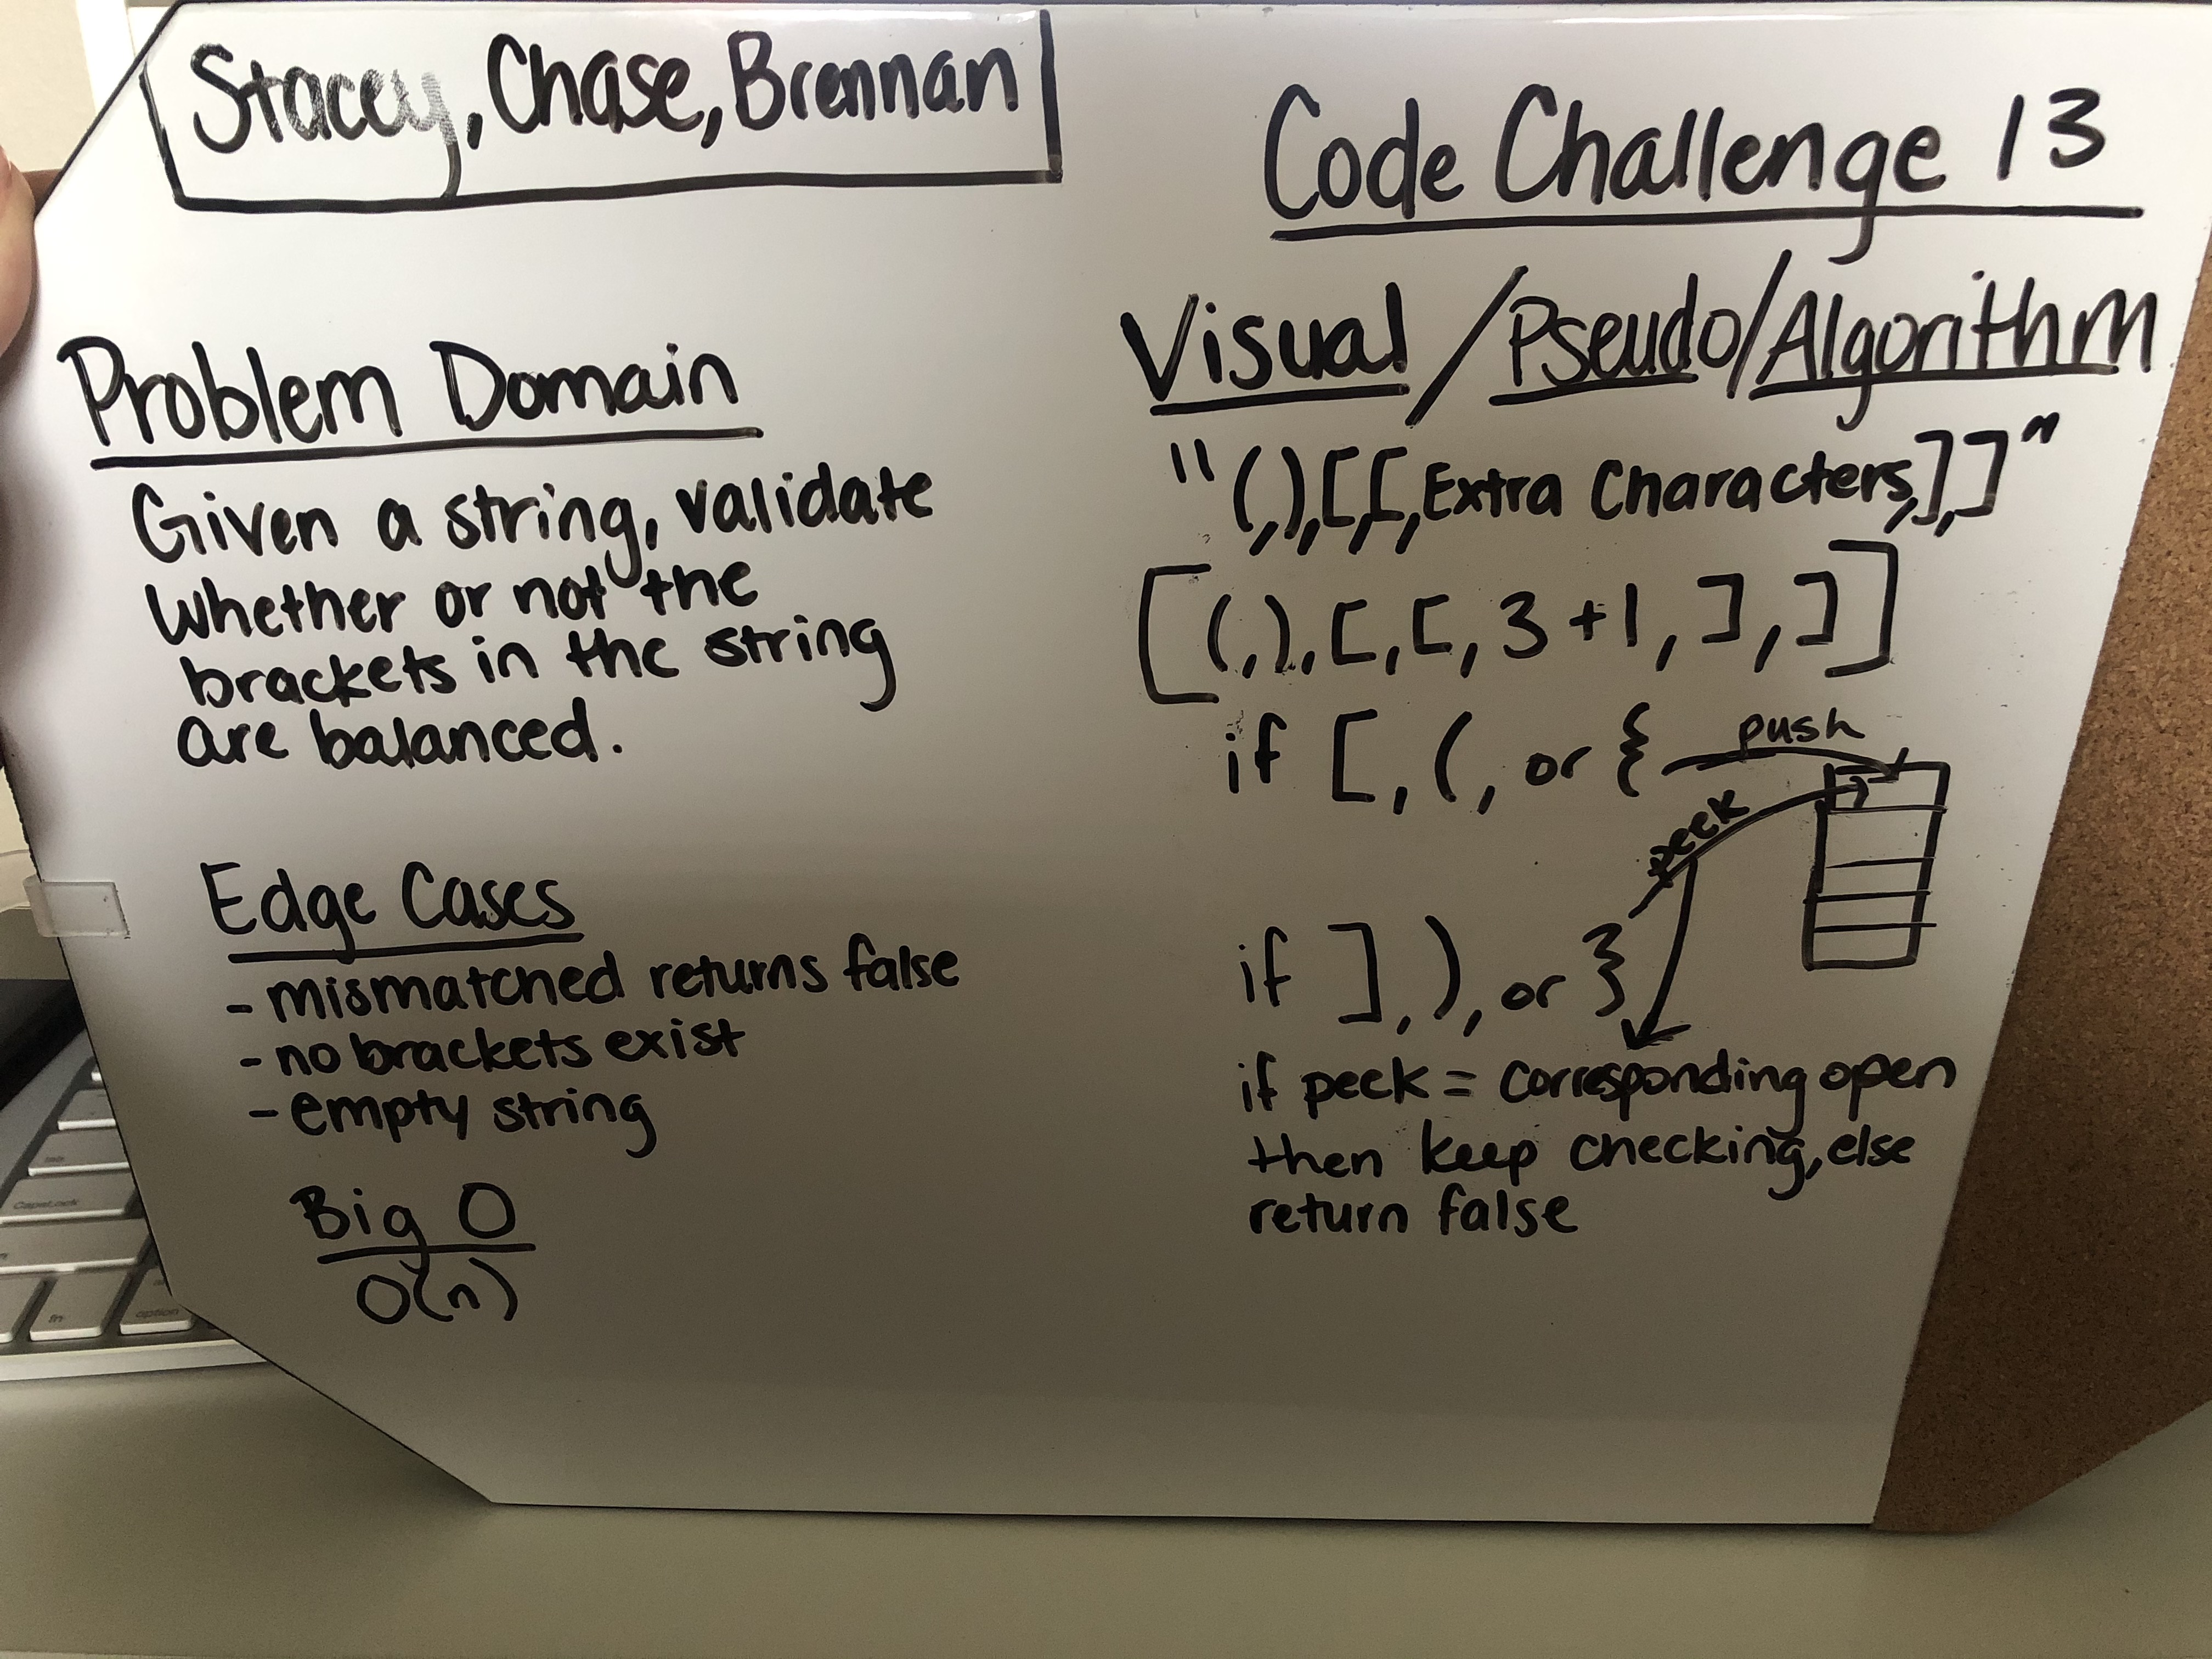 Stacey, Chase, Brennan
Code Challenge 13
Problem Domain
Given a string, validate
whether or not the
brackets in the string
are balanced.
Edge Cases
- mismatched returns false
- no brackets exist
- empty string
Big O
O(n)
Visual / Pseudo / Algorithm
"(,),[,[,Extra Characters,],]"
[(,),[,[,3+1,],]]
if [, (, or {
push
peek
if ], ), or }
if peek = corresponding open
then keep checking, else
return false
CapsLock
fn
option